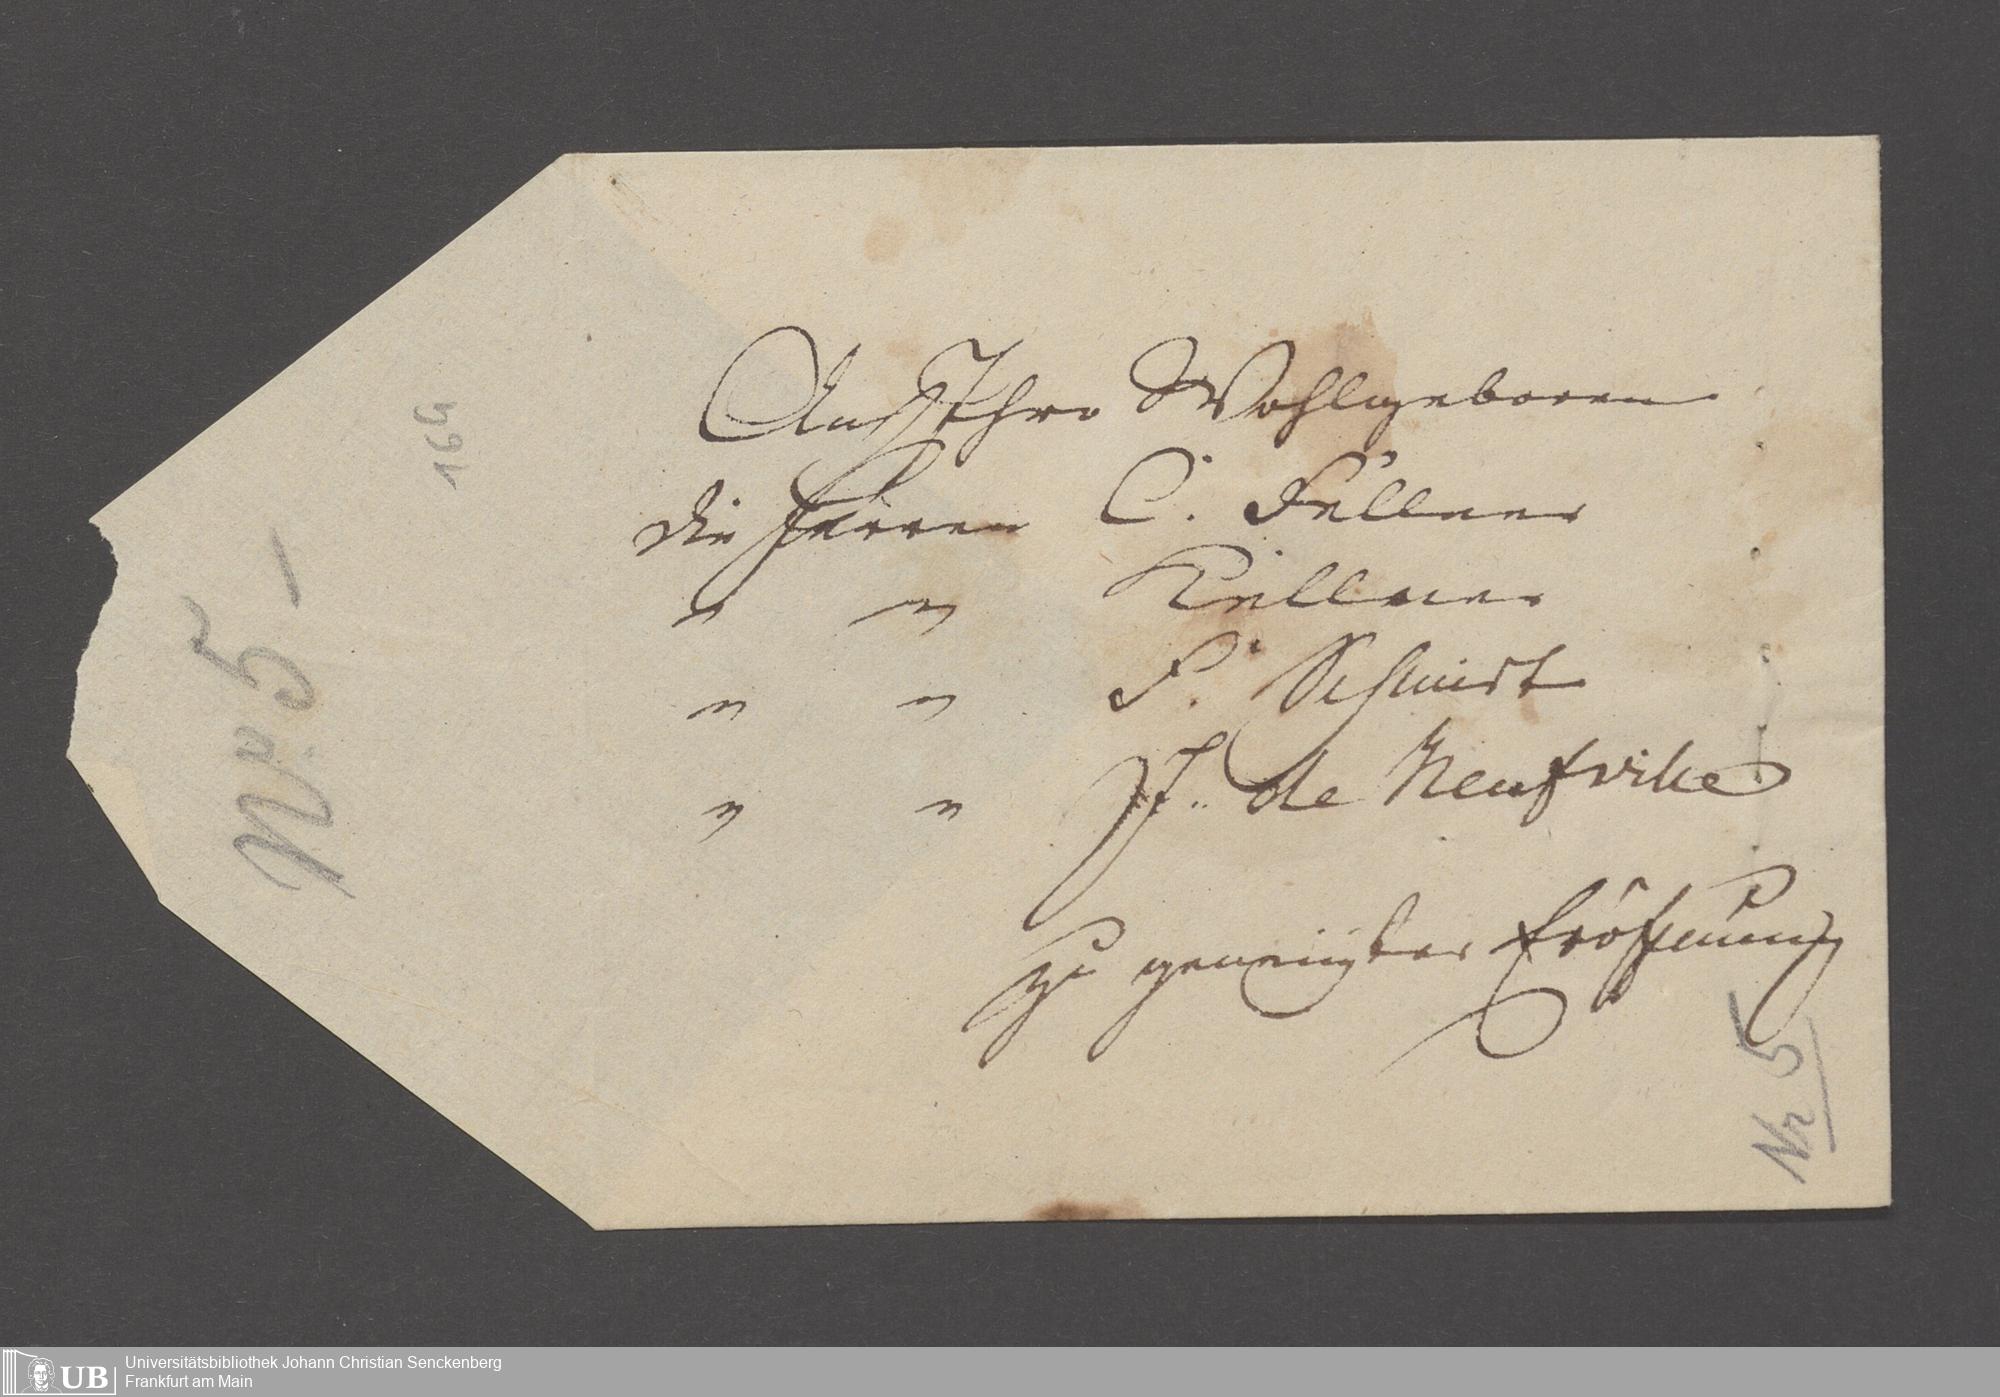 An Ihro Wohlgeboren
die Herren C. Fellner
" " Kellner
" " F. Schmidt
" " J. de Neufville
zu geneigter Eröffnung
Nr 5
No. 5
164
UB
Universitätsbibliothek Johann Christian Senckenberg
Frankfurt am Main